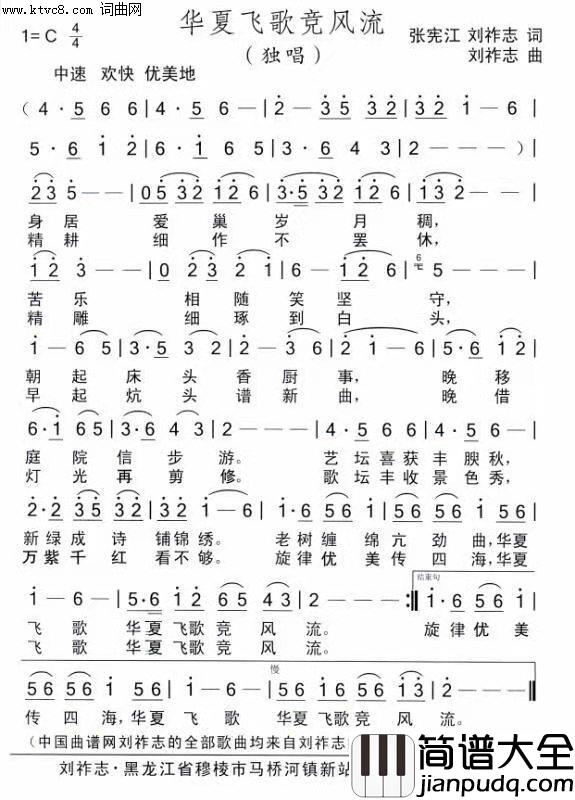 www.ktvc8.com 词曲网
华夏飞歌竞风流
1=C 4/4
(独唱)
张宪江 刘祚志 词
刘祚志 曲
中速 欢快 优美地
(4·5 6 6|4·5 6 6|2—3 5 3 2|1—2 6|
5·6 1 2|6·1 6 5|3·6 4 3|2———)|
2 3 5——|0 5 3 2 1 2 6|3·5 3 2 1 2 6|1 3 2——|
身居 爱巢岁月稠,
精耕 细作不罢休,
1 2 3—·|0 2 2 3 2 1|6—1 2 6|6 5———|
苦乐 相随笑坚守,
精雕 细琢到白头,
1—6 5|3·5 3 2|2—3 6|2 1—6|5·6 1 2|
朝起床头香厨事,晚移
早起炕头谱新曲,晚借
6·1 6 5|3·6 4 3|2———|4·5 6 6|4·5 6 6|
庭院信步游。 艺坛喜获丰腴秋,
灯光再剪修。 歌坛丰收景色秀,
新绿成诗铺锦绣。 老树缠绵亢劲曲,华夏
万紫千红看不够。 旋律优美传四海,华夏
结束句
1—6—|5·6 1 2 6 5 4 3|2———:‖1·6 5 6 1|
飞歌 华夏飞歌竞风流。 旋律优美
飞歌 华夏飞歌竞风流。
慢
5 6 5 6 1 5 6|1—2—|5 6 1 6 5 6 1 3|2———‖
传四海,华夏飞歌 华夏飞歌竞风流。
(中国曲谱网刘祚志的全部歌曲均来自刘祚志
刘祚志·黑龙江省穆棱市马桥河镇新站
简谱大全
jianpudq.com